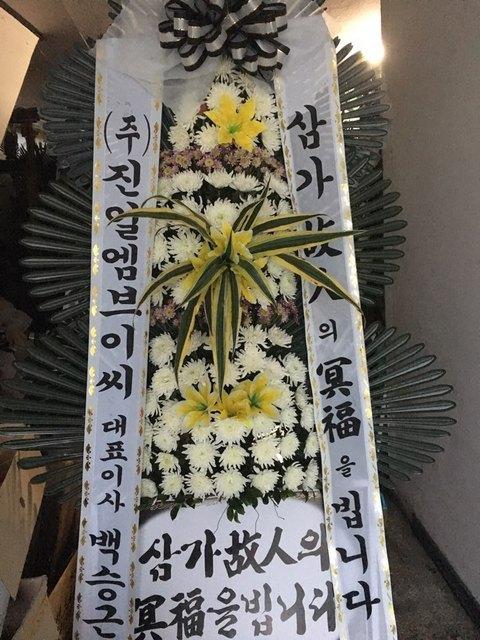 (주)진일엠브이씨 대표이사 백승근
삼가故人의 冥福을 빕니다
삼가故人의
冥福을빕니다